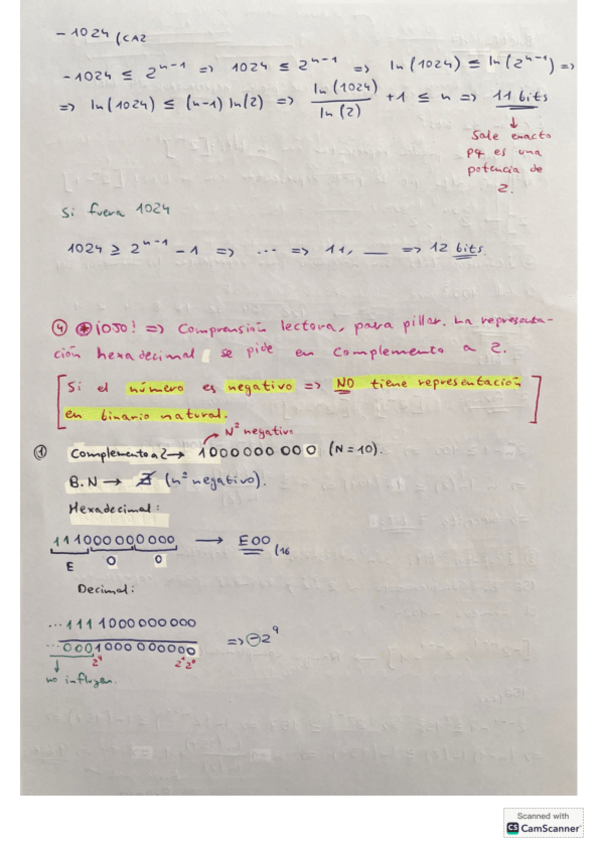 -1024 (CA2
-1024 ≤ 2^{n-1} => 1024 ≤ 2^{n-1} => ln(1024) ≤ ln(2^{n-1}) =>
=> ln(1024) ≤ (n-1) ln(2) => ln(1024)/ln(2) + 1 ≤ n => 11 bits
Sale exacto
pq es una
potencia de
2.
Si fuera 1024
1024 ≥ 2^{n-1} - 1 => ... => 11, __ => 12 bits.
④ ¡OJO! => Comprensión lectora, para pillar. La representa-
ción hexadecimal se pide en complemento a 2.
[Si el número es negativo => NO tiene representación
en binario natural.]
Nº negativo
① Complemento a 2 → 1000000000 (N=10).
B.N → ∄ (nº negativo).
Hexadecimal:
111000000000 → E00 (16
E 0 0
Decimal:
...1111000000000
...0001000000000 => ⊖2^9
2^9 2^1 2^0
no influyen.
Scanned with
CS CamScanner